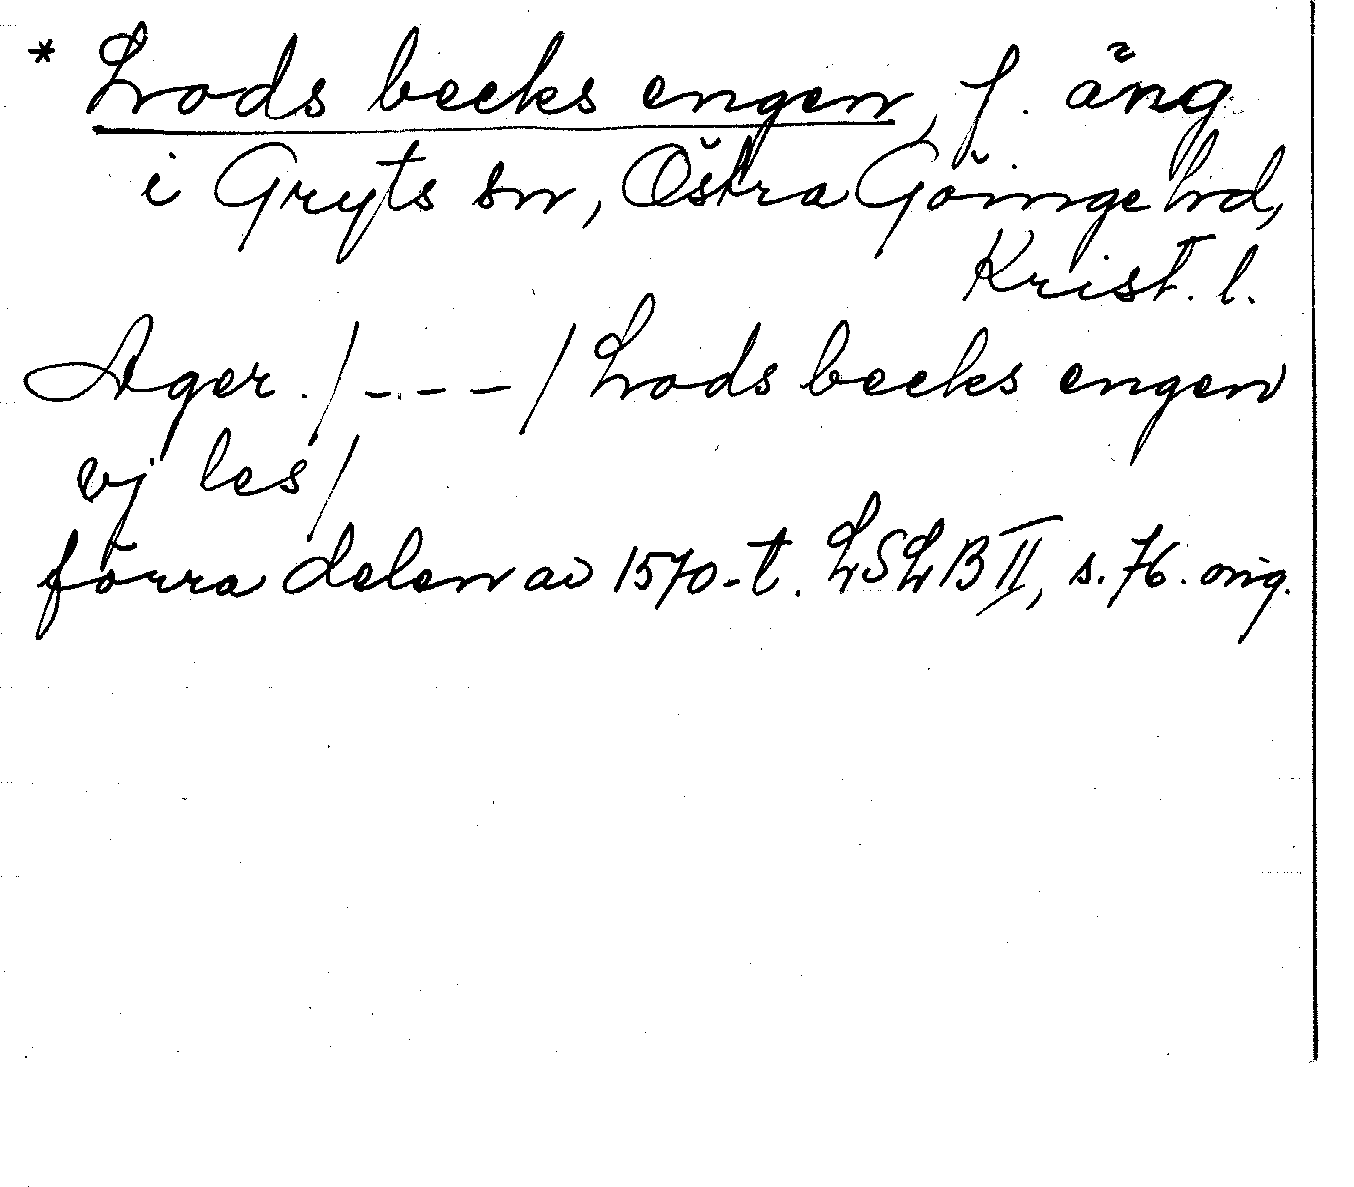 * Lods becks engen, f. äng
i Gryts sn, Östra Göinge hd,
Krist. l.
Ager. /---/ Lods becks engen
vj les/
förra delen av 1570-t. LSLB II, s. 76. orig.